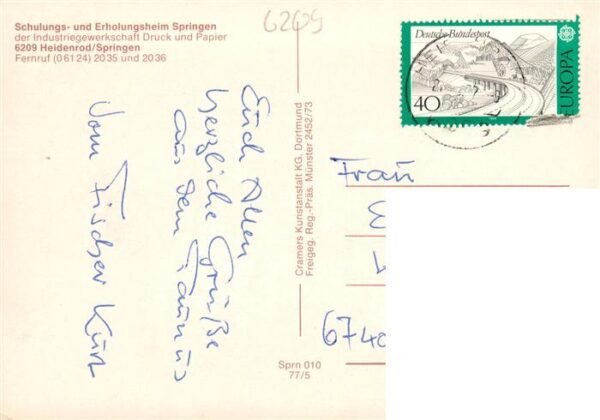 6209
Schulungs- und Erholungsheim Springen
der Industriegewerkschaft Druck und Papier
6209 Heidenrod/Springen
Fernruf (0 61 24) 20 35 und 20 36
Euch Allen
herzliche Grüße
aus dem Taunus
Vom Fischer Kurt
Cramers Kunstanstalt KG, Dortmund
Freigeg. Reg.-Präs. Münster 2452/73
Sprn 010
77/5
Deutsche Bundespost
40
EUROPA
Frau
674